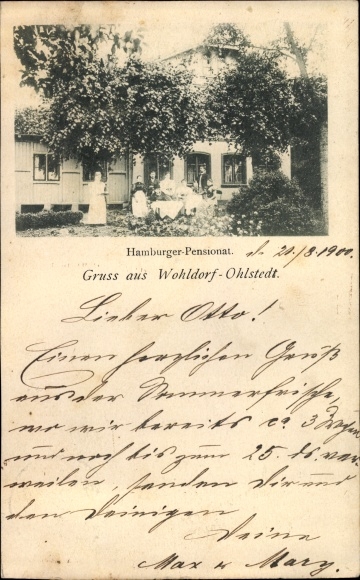 Hamburger-Pensionat. d. 21./8. 1900.
Gruss aus Wohldorf-Ohlstedt.
Lieber Otto!
Einen herzlichen Gruß
aus der Sommerfrische,
wo wir bereits ca. 3 Wochen
und noch bis zum 25. ds. ver
weilen, senden Dir und
den Deinigen
Deine
Max u Mary.